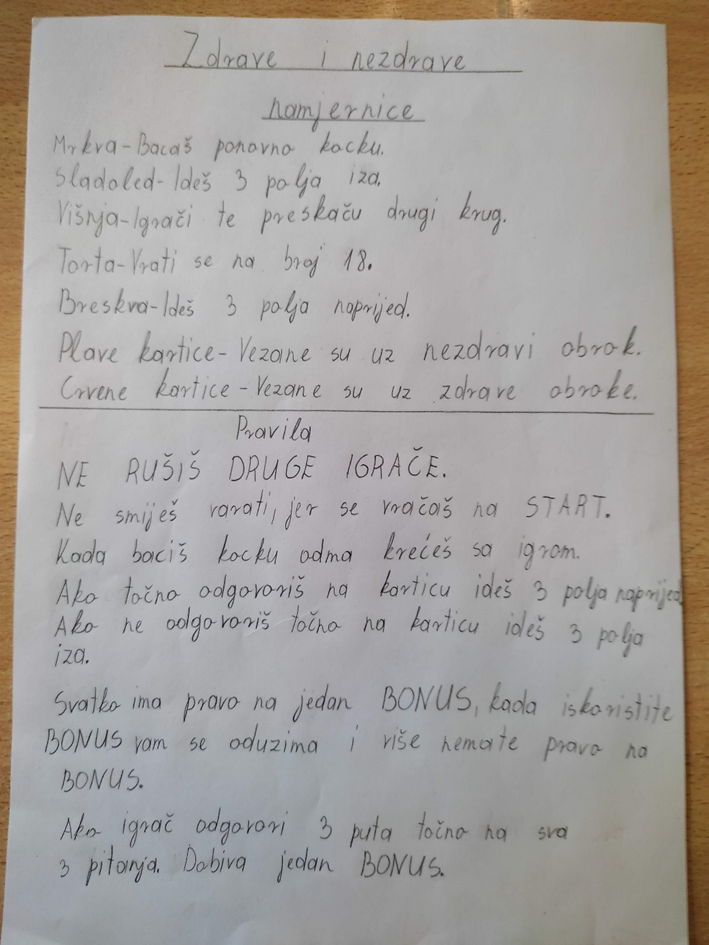 Zdrave i nezdrave
namjernice
Mrkva-Bacaš ponovno kocku.
Sladoled-Ideš 3 polja iza.
Višnja-Igrači te preskaču drugi krug.
Torta-Vrati se na broj 18.
Breskva-Ideš 3 polja naprijed.
Plave kartice-Vezane su uz nezdravi obrok.
Crvene kartice-Vezane su uz zdrave obroke.
Pravila
NE RUŠIŠ DRUGE IGRAČE.
Ne smiješ varati, jer se vračaš na START.
Kada baciš kocku odma krećeš sa igrom.
Ako točno odgovoriš na karticu ideš 3 polja naprijed
Ako ne odgovoriš točno na karticu ideš 3 polja
iza.
Svatko ima pravo na jedan BONUS, kada iskoristite
BONUS vam se oduzima i više nemate pravo na
BONUS.
Ako igrač odgovori 3 puta točno na sva
3 pitanja. Dobiva jedan BONUS.